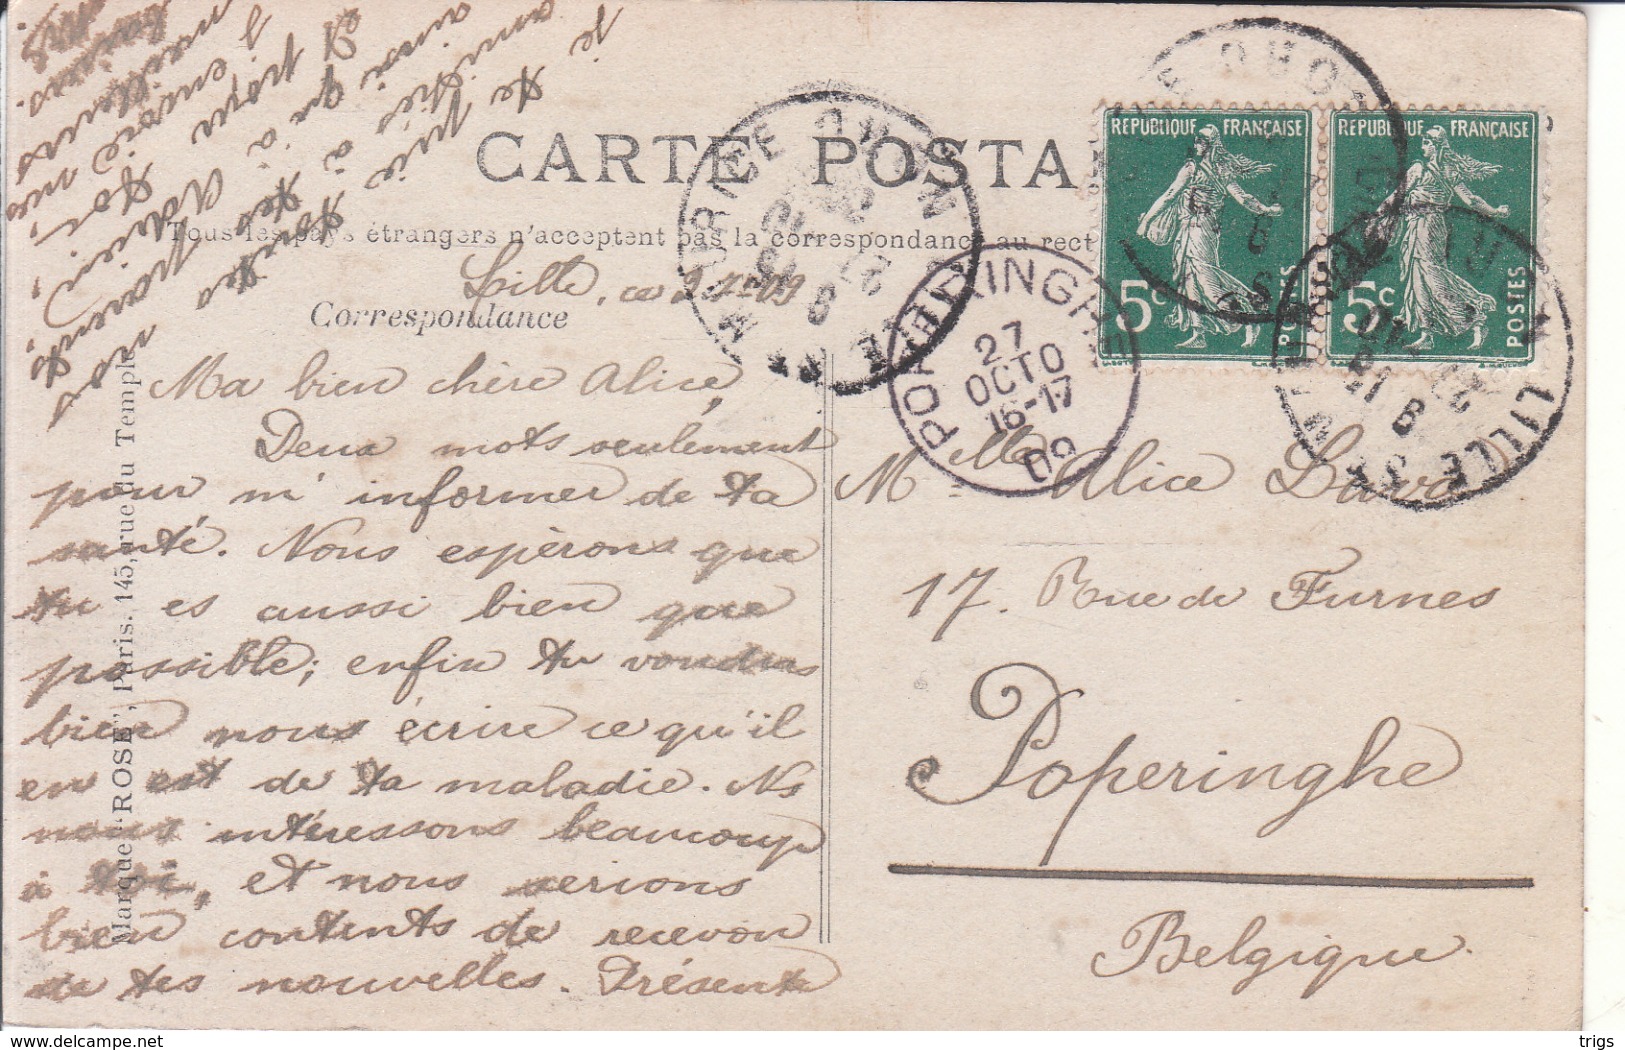 CARTE POSTA
Tous les pays étrangers n'acceptent pas la correspondance au rect
Correspondance
Lille, ce
Ma bien chère Alice,
Deux mots seulement
pour m'informer de ta
santé. Nous espérons que
tu es aussi bien que
possible; enfin tu voudras
bien nous écrire ce qu'il
en est de ta maladie. Ns
nous intéressons beaucoup
à toi, et nous serions
bien contents de recevoir
de tes nouvelles. Présente
je te prie
amitiés à
ainsi qu'à tes
Et pour toi,
j'envoie
meilleurs
baisers.
Marque "ROSE", Paris. 145, rue du Temple
REPUBLIQUE FRANÇAISE
5c
POSTES
REPUBLIQUE FRANÇAISE
5c
POSTES
POPERINGHE
27
OCTO
16-17
09
LILLE
LILLE
Mlle Alice
17. Rue de Furnes
Poperinghe
Belgique.
delcampe.net
trigs